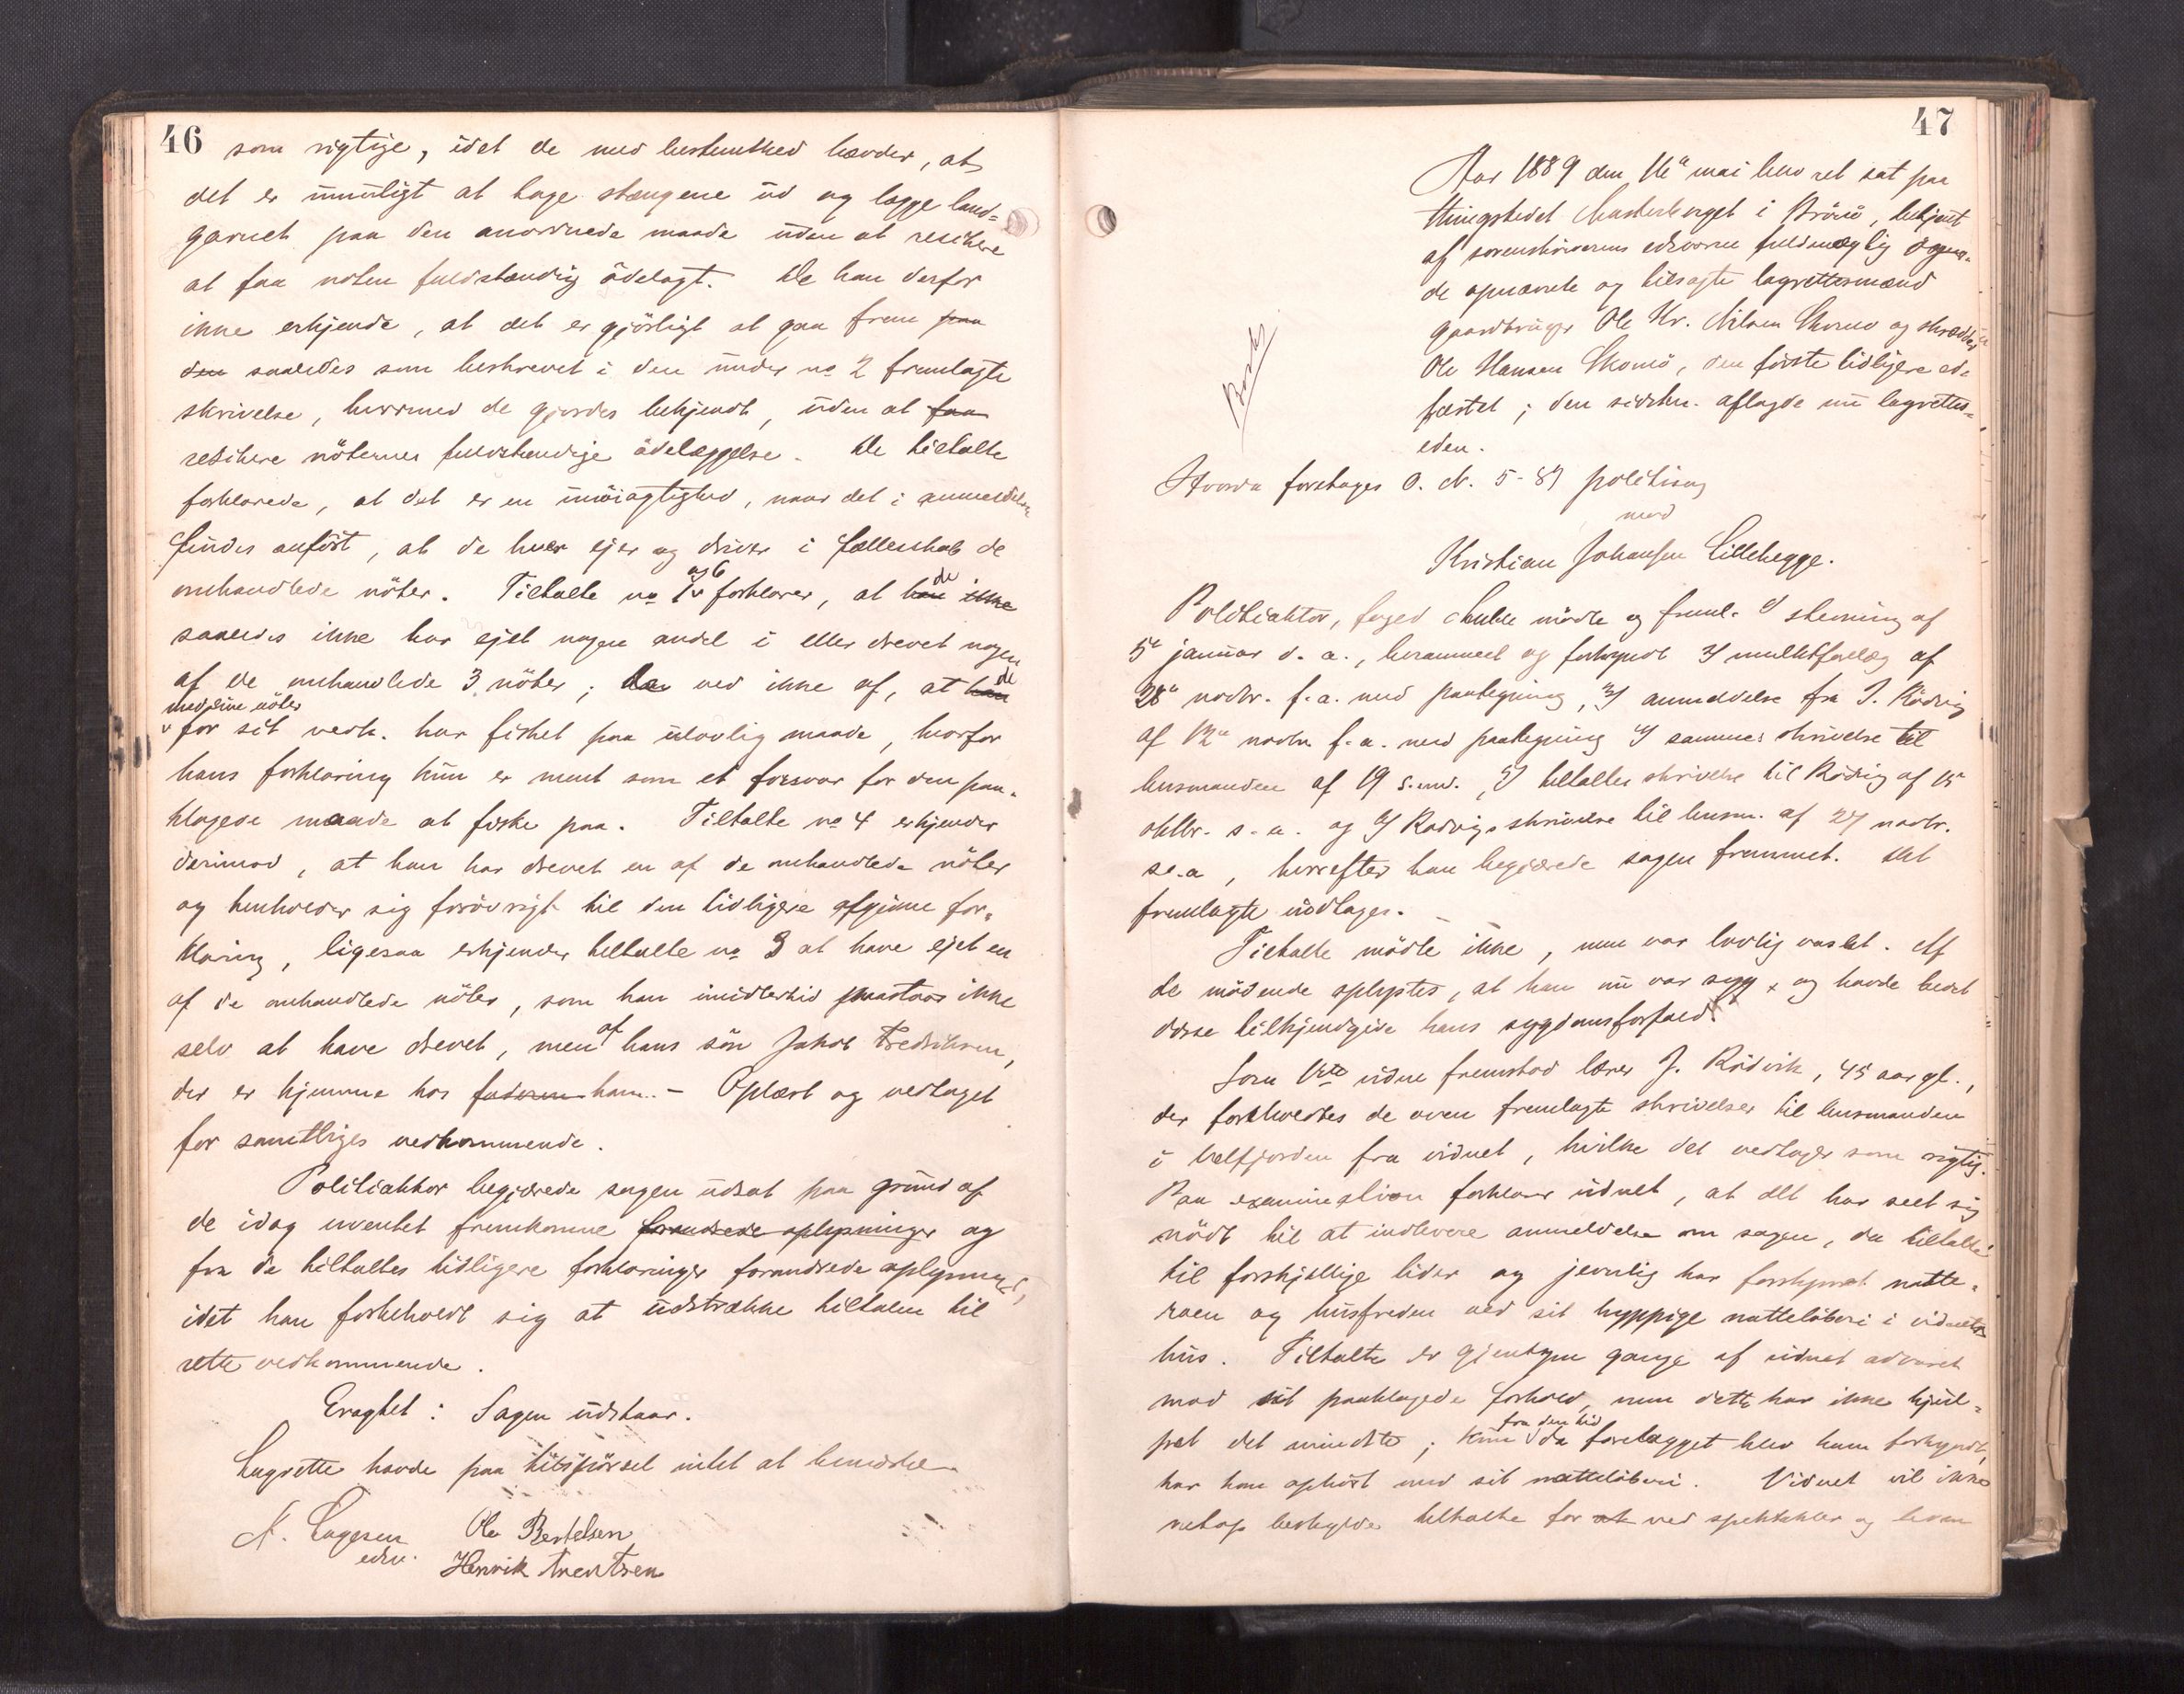 46
som rigtige, idet de med bestemthed hævder, at
det er umuligt at tage stængene ud og lægge land=
garnet paa den anordnede maade uden at resikere
at faa noten fuldstændig ödelagt. De kan derfor
ikke erkjende, at det er gjörligt at gaa frem paa
den saaledes som beskrevet i den under no 2 fremlagte
skrivelse, hvormed de gjordes bekjendt, uden at faa
resikere nöternes fuldstændige ödelæggelse. De tiltalte
forklarede, at det er en unöiagtighed, naar det i anmeldelsen
findes anfört, at de hver ejer og driver i fællesskab de
omhandlede nöter. Tiltalte no 1 og 6 forklarer, at han de ikke
saaledes ikke har ejet nogen andel i eller drevet nogen
af de omhandlede 3 nöter; de ved ikke af, at han de
med sine nöter
for sit vedk. har fisket paa ulovlig maade, hvorfor
hans forklaring kun er ment som et forsvar for den paa=
klagede maade at fiske paa. Tiltalte no 4 erkjender
derimod, at han har drevet en af de omhandlede nöter
og henholder sig forövrigt til den tidligere afgivne for=
klaring, ligesaa erkjender tiltalte no 3 at have ejet en
af de omhandlede nöter, som han imidlertid paastaar ikke
selv at have drevet, men af hans sön Jakob Fredriksen,
der er hjemme hos faderen ham. - Oplæst og vedtaget
for samtliges vedkommende.
Politiaktor begjærede sagen udsat paa grund af
de idag uventet fremkomne forandrede oplysninger og
fra de tiltaltes tidligere forklaringer forandrede oplysninger,
idet han forbeholdt sig at udstrække tiltalen til
rette vedkommende.
Eragtet: Sagen udstaar.
Lagrette havde paa tilspörsel intet at bemærke.
N. Lagesen Ole Bertelsen
edsv. Henrik
47
Aar 1889 den 16de mai blev ret sat paa
thingstedet i Brönö, betjent
af sorenskriverens edsvorne fuldmægtig
de opnævnte og tilsagte lagrettesmænd
gaardbruger Ole Kr. Nilsen og skrædder
Ole Hansen Skomö, den förste tidligere ed=
fæstet; den sidstn. aflagde nu lagrettes=
eden.
Hvorda foretages O. N. 5-89 politisag
mod
Kristian Johansen Lillehegge.
Politiaktor, foged mödte og freml. 1) stevning af
5te januar d. a., berammet og forkyndt 2) mulktforelæg af
28de novbr. f. a. med paategning, 3) anmeldelse fra J. Rödvig
af 12te novbr. f. a. med paategning 4) sammes skrivelse til
lensmanden af 19 s. md., 5) tiltaltes skrivelse til Rödvig af 15
oktbr. s. a. og 6) Rödvigs skrivelse til lensm. af 27 novbr.
s. a, hvorefter han begjærede sagen fremmet. Det
fremlagte modtages.
Tiltalte mödte ikke, men var lovlig varslet. Af
de mödende oplystes, at han nu var syg og havde bedt
disse tilkjendegive hans sygdomsforfald.
Som 1ste vidne fremstod lærer J. Rödvik, 45 aar gl.,
der foreholdtes de oven fremlagte skrivelser til lensmanden
i Velfjorden fra vidnet, hvilke det vedtager som rigtig.
Paa examination forklarer vidnet, at det har seet sig
nödt til at indlevere anmeldelse om sagen, da tiltalte
til forskjellige tider og jevnlig har forstyrret natte=
roen og husfreden ved sit hyppige natteløberi i vidnets
hus. Tiltalte er gjentagne gange af vidnet advaret
mod sit paaklagede forhold, men dette har ikke hjul=
pet det mindste; kun fra den tid da forelægget blev ham forkyndt,
har han ophört med sit natteløberi. Vidnet vil ikke
netop beskylde tiltalte for at ved spektakler og